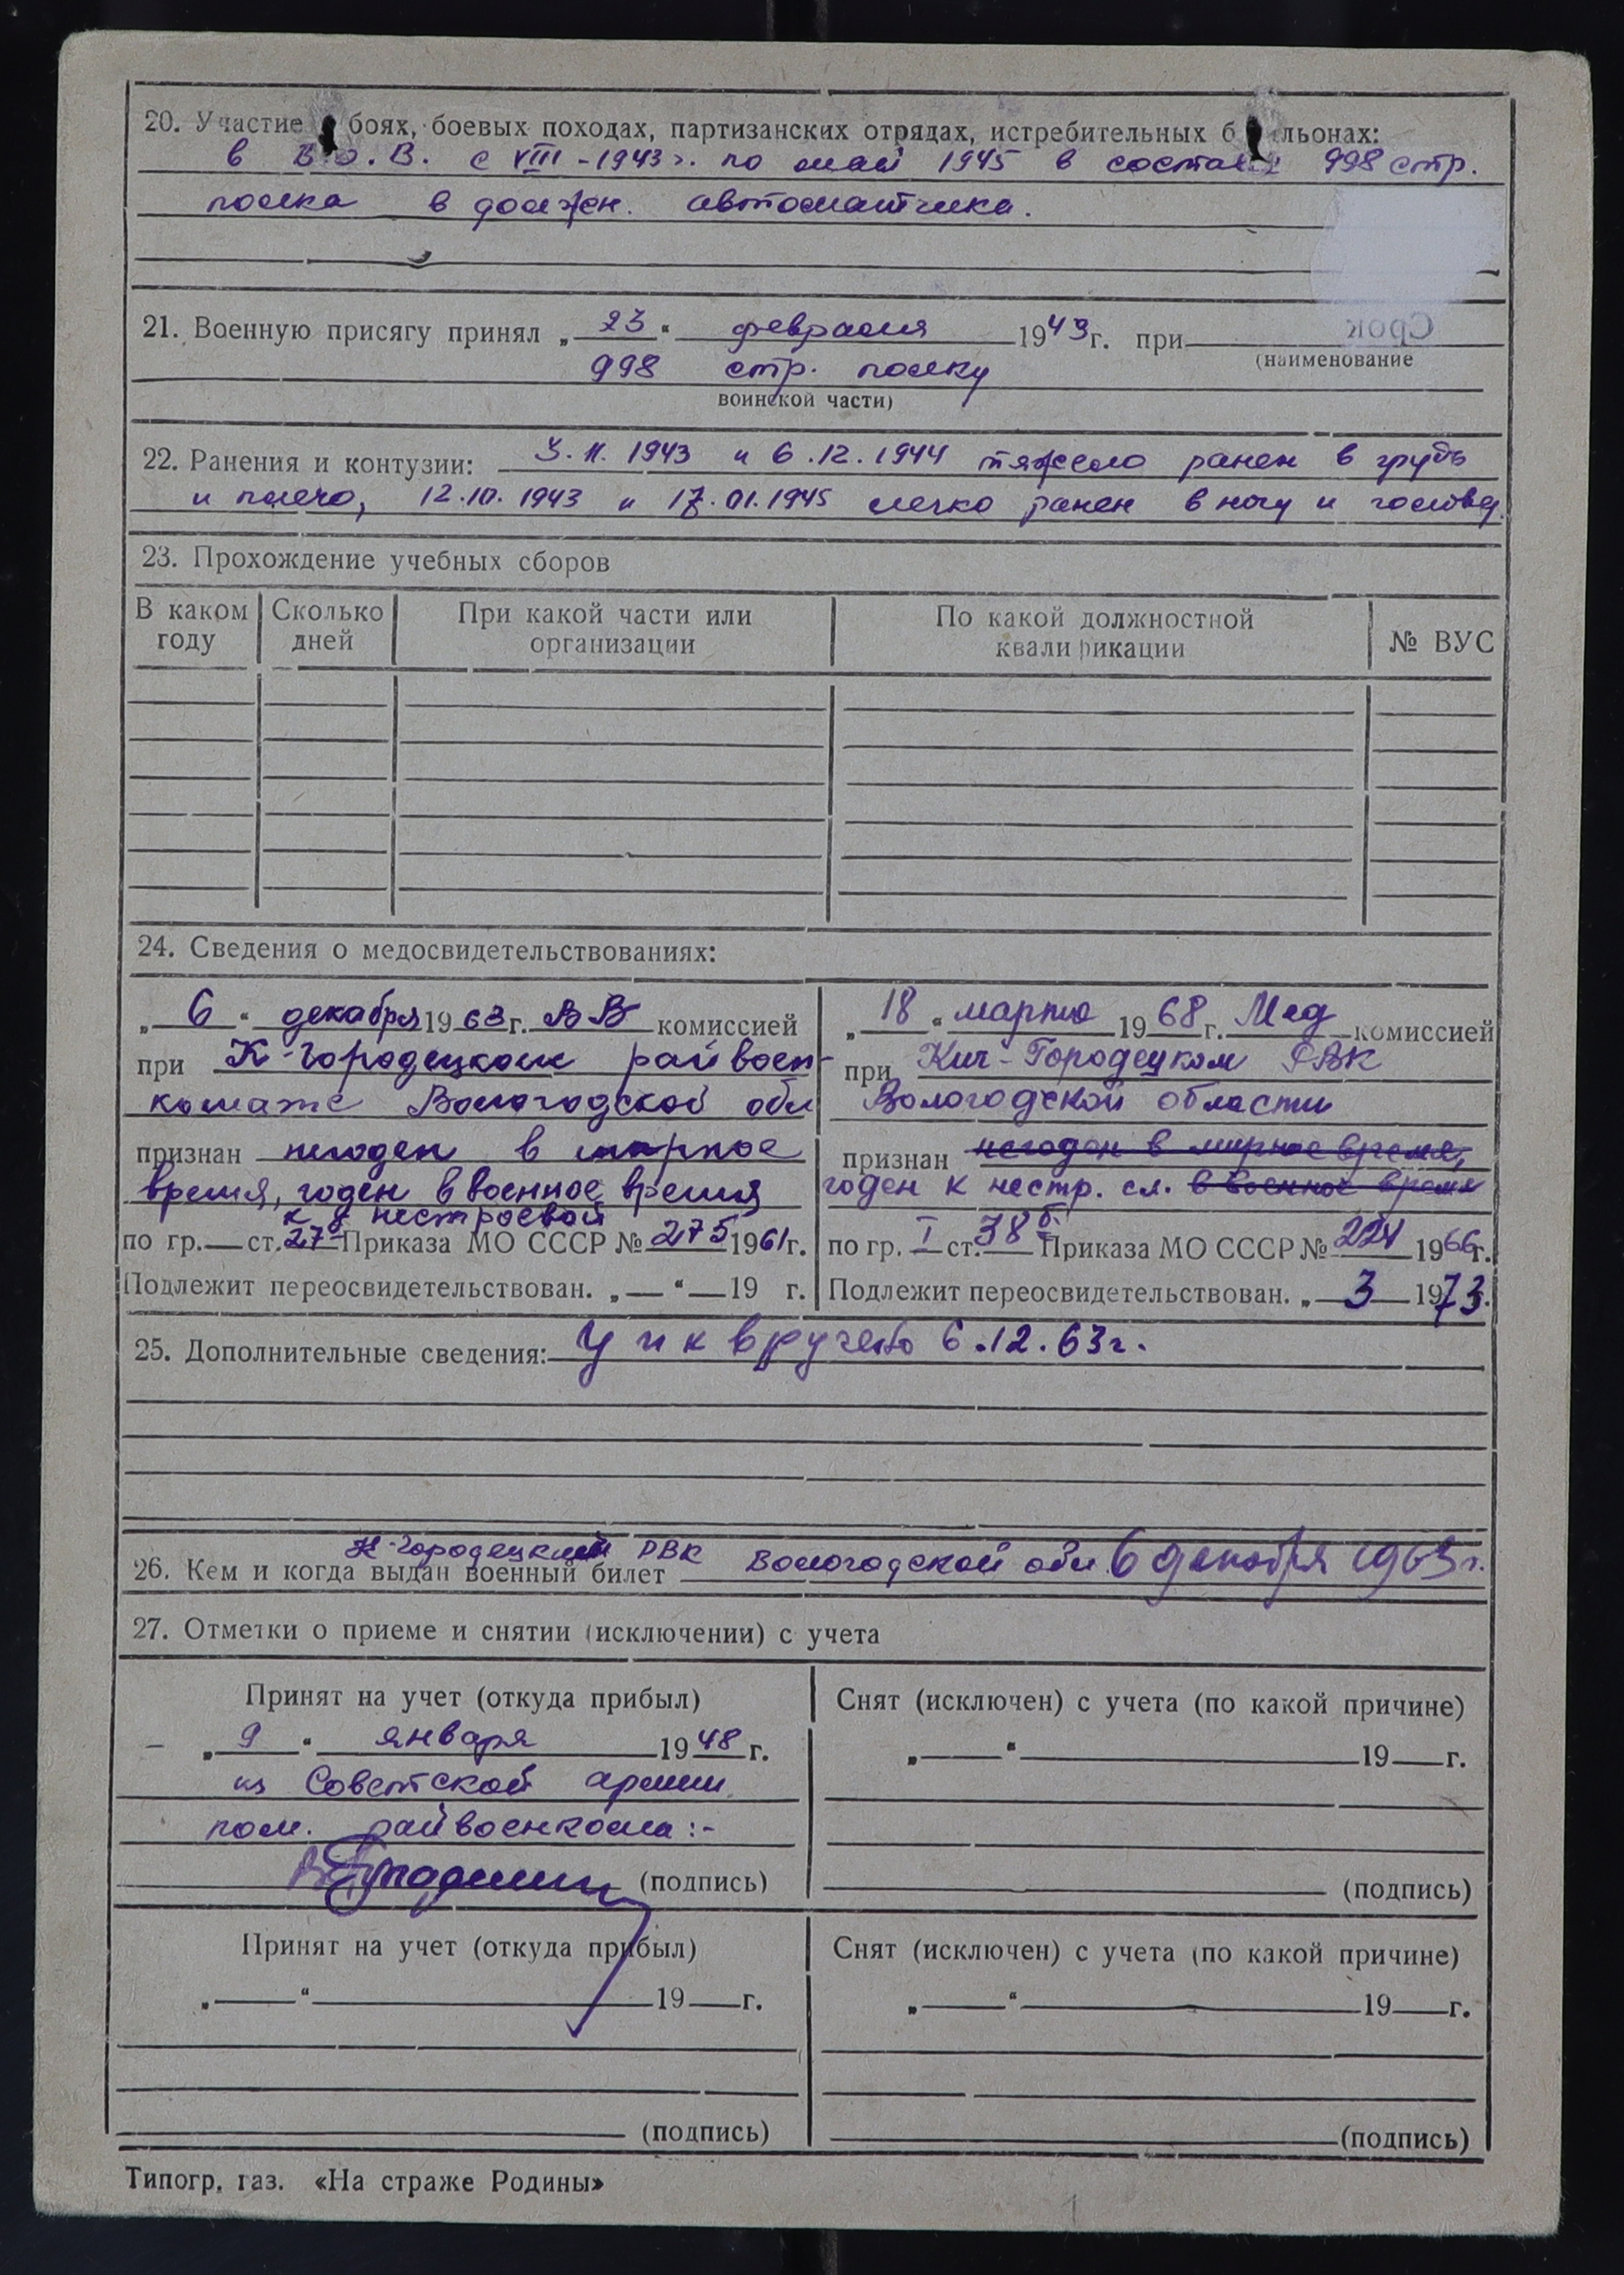 20. Участие боях, боевых походах, партизанских отрядах, истребительных б льонах:
в В.О.В. с VIII-1943 г. по май 1945 в составе 998 стр.
полка в должн. автоматчика.
21. Военную присягу принял „23“ февраля 1943 г. при
Срок
(наименование
998 стр. полку
воинской части)
22. Ранения и контузии: 3.11.1943 и 6.12.1944 тяжело ранен в грудь
и плечо, 12.10.1943 и 17.01.1945 легко ранен в ногу и голову.
23. Прохождение учебных сборов
В каком году
Сколько дней
При какой части или организации
По какой должностной квалификации
№ ВУС
24. Сведения о медосвидетельствованиях:
„6“ декабря 1963 г. ВВ комиссией
при К-Городецком райвоен-
комате Вологодской обл
признан негоден в мирное
время, годен в военное время
к нестроевой
по гр. — ст. 27б Приказа МО СССР № 275 1961 г.
Подлежит переосвидетельствован. „—“ — 19 г.
„18“ марта 1968 г. Мед комиссией
при Кич-Городецком РВК
Вологодской области
признан негоден в мирное время,
годен к нестр. сл. в военное время
по гр. I ст. 38 б. Приказа МО СССР № 224 1966 г.
Подлежит переосвидетельствован. „ 3 1973 г.
25. Дополнительные сведения: У и к вручено 6.12.63 г.
К-Городецким РВК Вологодской обл. 6 декабря 1963 г.
26. Кем и когда выдан военный билет
27. Отметки о приеме и снятии (исключении) с учета
Принят на учет (откуда прибыл)
– „9“ января 1948 г.
из Советской армии.
пом. райвоенкома:-
(подпись)
Снят (исключен) с учета (по какой причине)
„——“ —— 19—г.
(подпись)
Принят на учет (откуда прибыл)
„——“ —— 19—г.
(подпись)
Снят (исключен) с учета (по какой причине)
„——“ —— 19—г.
(подпись)
Типогр. газ. «На страже Родины»